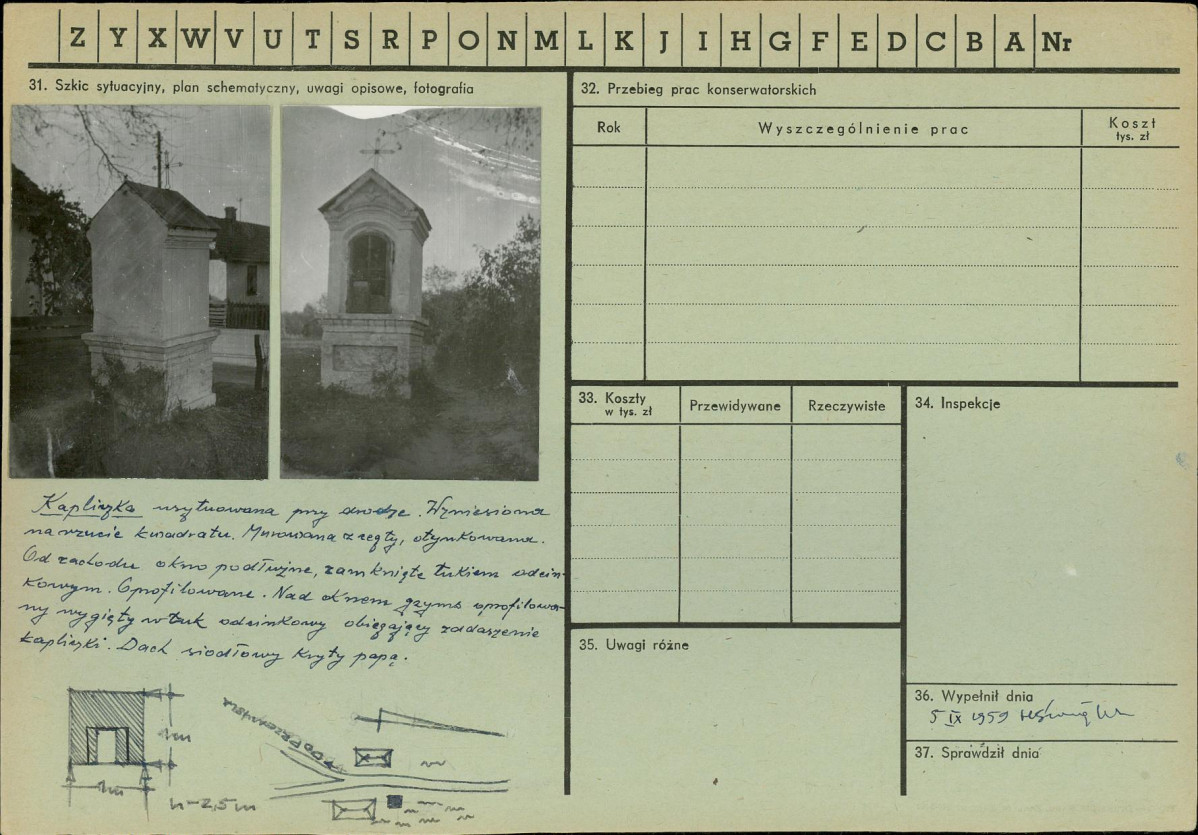 Z Y X W V U T S R P O N M L K J I H G F E D C B A Nr
31. Szkic sytuacyjny, plan schematyczny, uwagi opisowe, fotografia
Kapliczka usytuowana przy drodze. Wzniesiona
na rzucie kwadratu. Murowana z cegły, otynkowana.
Od zachodu okno podłużne, zamknięte łukiem odcin-
kowym. Oprofilowane. Nad oknem gzyms oprofilowa-
ny wygięty w łuk odcinkowy obiegający zadaszenie
kapliczki. Dach siodłowy kryty papą.
1m
1m
h-2,5m
DO PRZEMYŚLA
32. Przebieg prac konserwatorskich
Rok
Wyszczególnienie prac
Koszt
tys. zł
33. Koszty
w tys. zł
Przewidywane
Rzeczywiste
34. Inspekcje
35. Uwagi różne
36. Wypełnił dnia
5 IX 1959
37. Sprawdził dnia